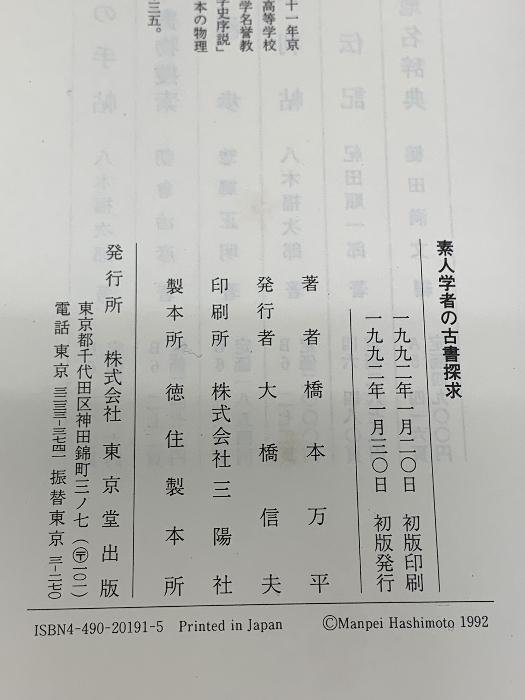 十一年京
高等学校
学名誉教
子史序説」
本の物理
三五。
素人学者の古書探求
一九九二年一月二〇日 初版印刷
一九九二年一月三〇日 初版発行
著者 橋本万平
発行者 大橋信夫
印刷所 株式会社三陽社
製本所 徳住製本所
発行所 株式会社 東京堂出版
東京都千代田区神田錦町三ノ七(〒一〇一)
電話 東京 三二三三-三七四一 振替東京 三-二七〇
ISBN4-490-20191-5 Printed in Japan ©Manpei Hashimoto 1992